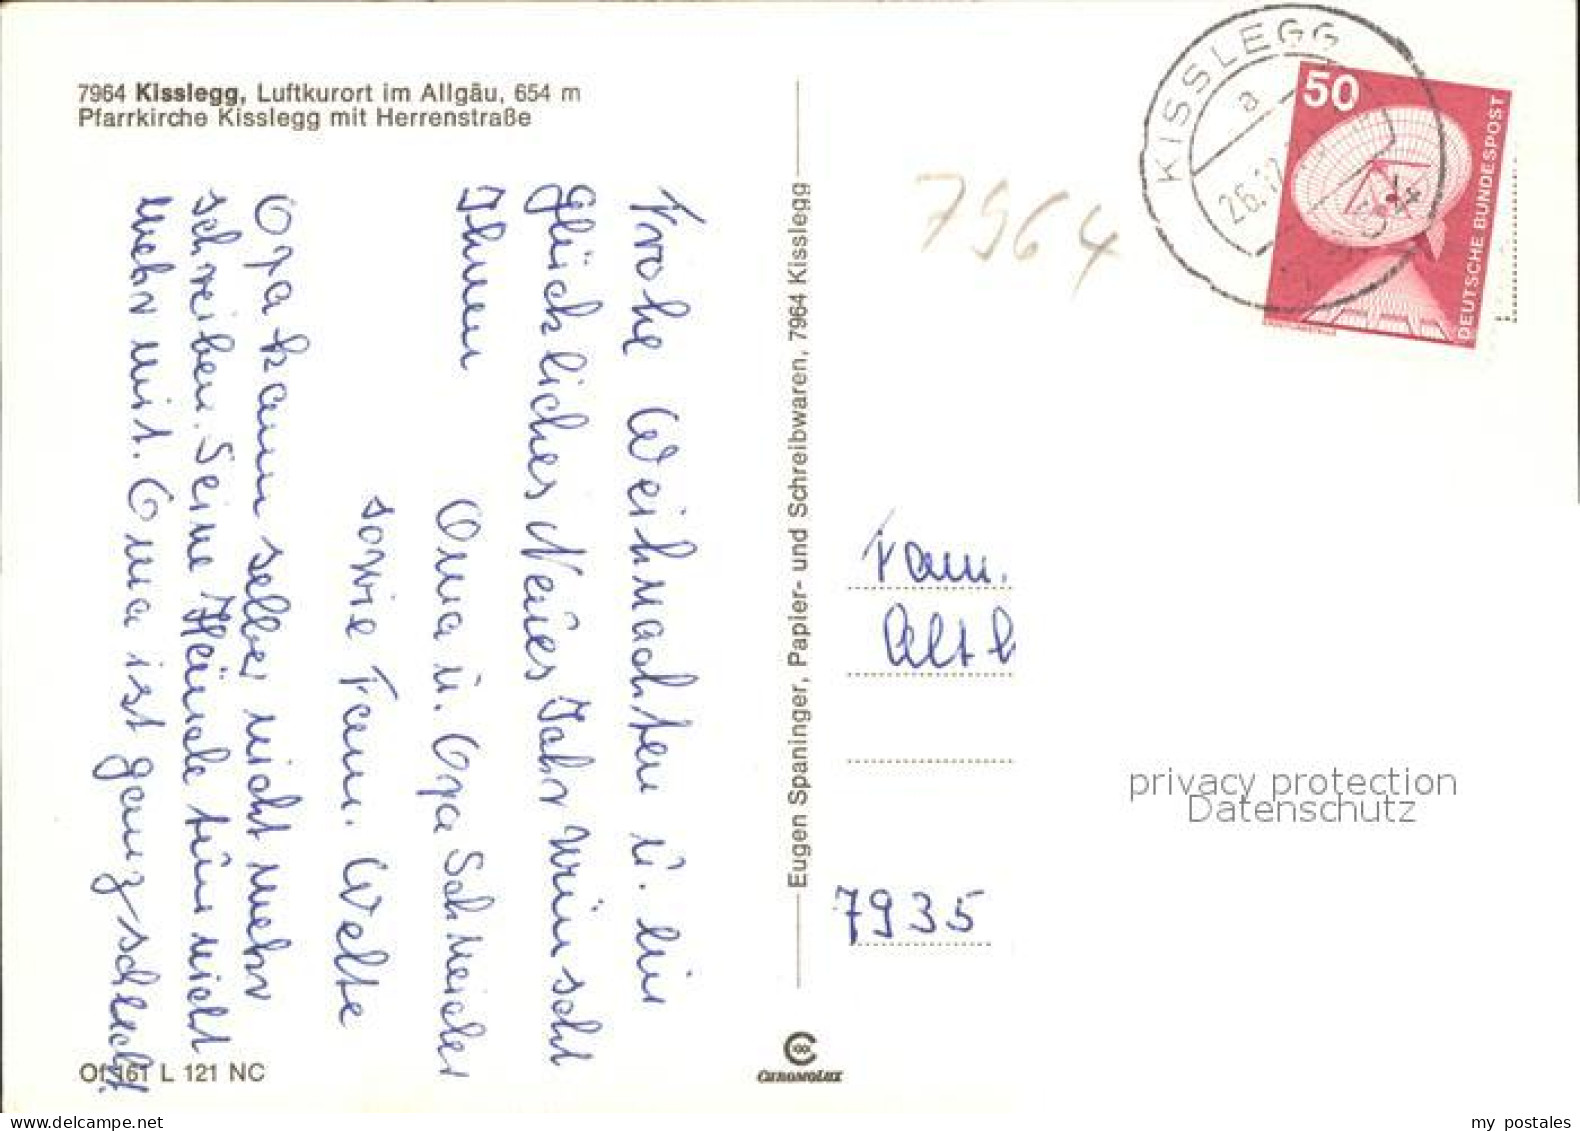 7964 Kisslegg, Luftkurort im Allgäu, 654 m
Pfarrkirche Kisslegg mit Herrenstraße
Frohe Weihnachten u. ein
glückliches Neues Jahr wünscht
Ihnen Oma u. Opa Schmeicher
sowie Fam. Welte
Opa kann selber nicht mehr
schreiben. Seine Hände tun nicht
mehr mit. Oma ist ganz schlecht
Of 161 L 121 NC
Eugen Spaninger, Papier- und Schreibwaren, 7964 Kisslegg
CHROMOLUX
7964
KISSLEGG
a
26.12.
50
DEUTSCHE BUNDESPOST
Fam.
Altb
7935
privacy protection
Datenschutz
my postales